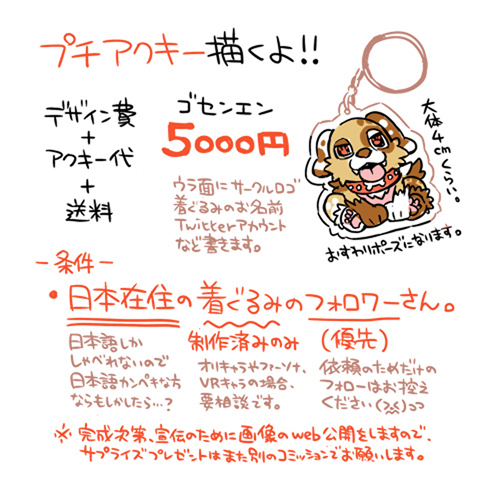 プチアクキー描くよ!!
デザイン費
+
アクキー代
+
送料
ゴセンエン
5000円
ウラ面にサークルロゴ
着ぐるみのお名前
Twitterアカウント
など書きます。
大体4cmくらい。
おすわりポーズになります。
-条件-
・日本在住の着ぐるみのフォロワーさん。
日本語しか
しゃべれないので
日本語カンペキな方
ならもしかしたら…?
制作済みのみ
オリキャラやファーソナ、
VRキャラの場合、
要相談です。
(優先)
依頼のためだけの
フォローはお控え
ください
※完成次第、宣伝のために画像のweb公開をしますので、
サプライズプレゼントはまた別のコミッションでお願いします。